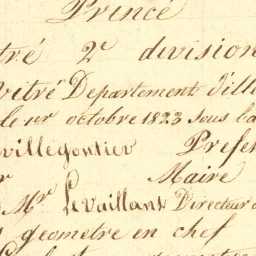 Princé
tré 2e division
Vitré Departement d'ille
le 1er octobre 1823 sous la
villegontier Prefet
Maire
Mr Levaillant Directeur
geometre en chef